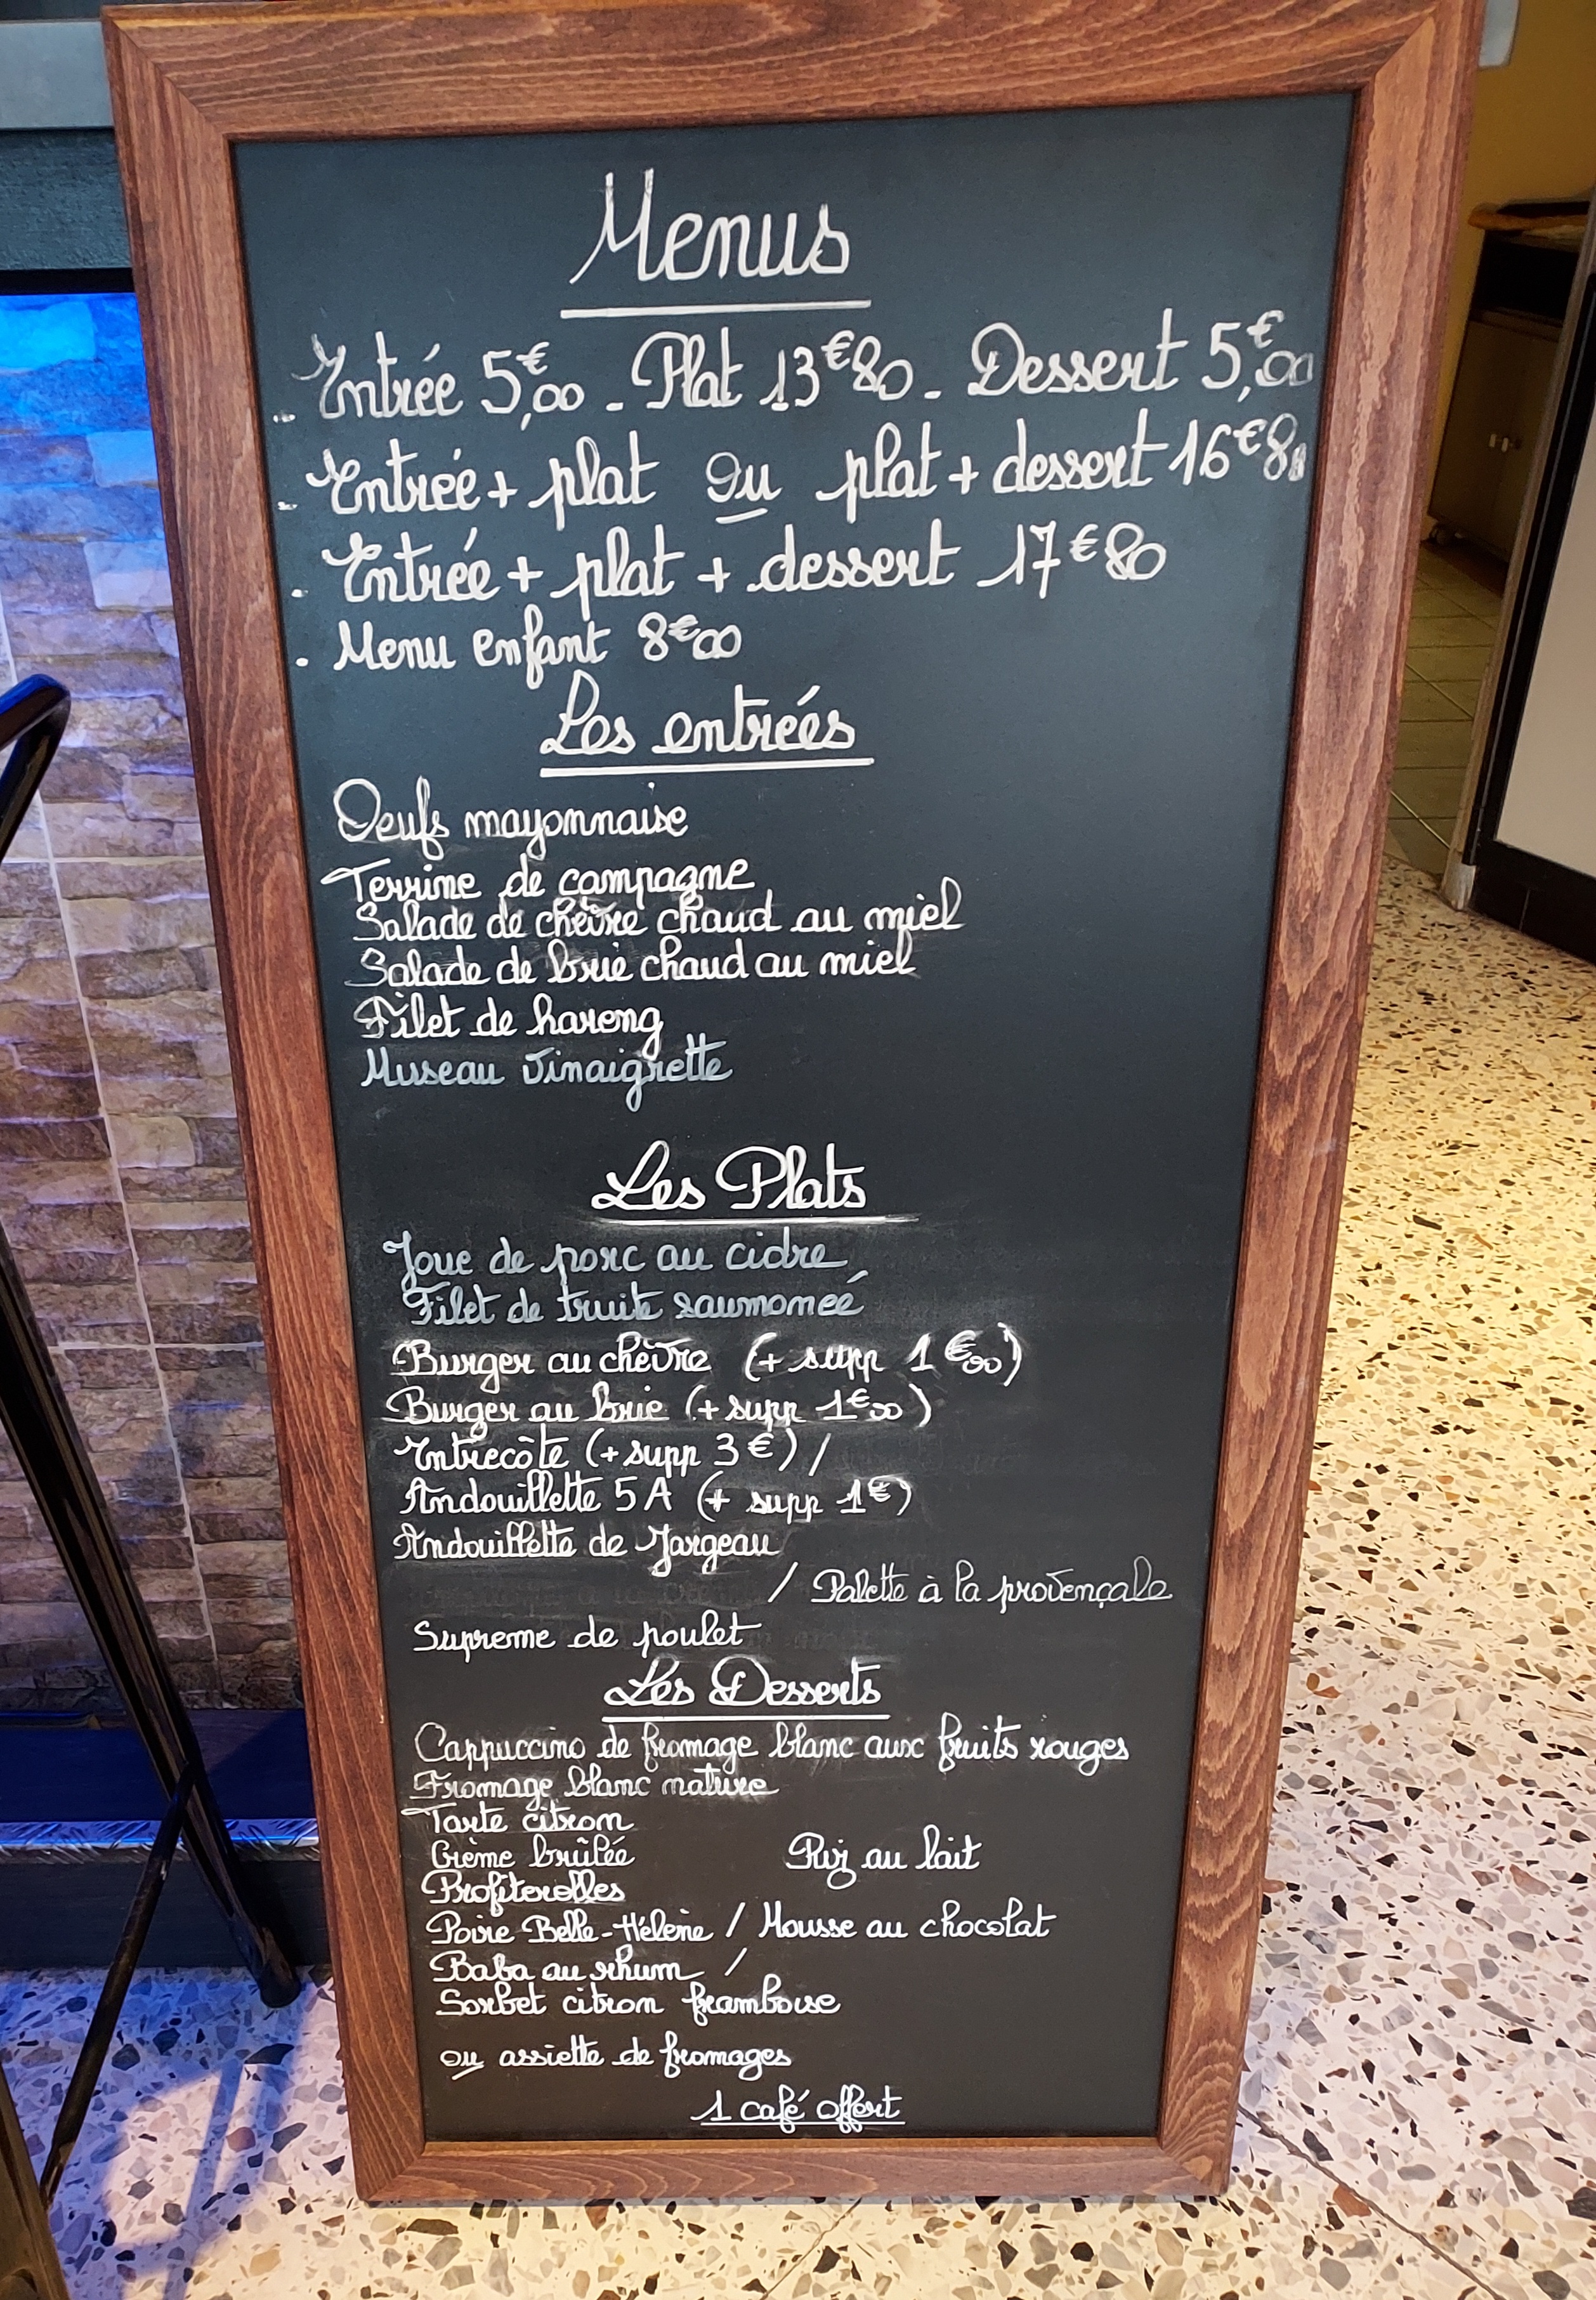 Menus
- Entrée 5,€00 - Plat 13€80 - Dessert 5,€00
- Entrée + plat ou plat + dessert 16€80
- Entrée + plat + dessert 17€80
- Menu enfant 8€00
Les entrées
Oeufs mayonnaise
Terrine de campagne
Salade de chèvre chaud au miel
Salade de brie chaud au miel
Filet de hareng
Museau vinaigrette
Les Plats
Joue de porc au cidre
Filet de truite saumoneé
Burger au chèvre (+ supp 1€00)
Burger au brie (+ supp 1€00)
Entrecôte (+ supp 3€) /
Andouillette 5A (+ supp 1€)
Andouillette de Jargeau
/ Palette à la provençale
Supreme de poulet
Les Desserts
Cappuccino de fromage blanc aux fruits rouges
Fromage blanc nature
Tarte citron
Crème brûlée Riz au lait
Profiterolles
Poire Belle-Hélène / Mousse au chocolat
Baba au rhum /
Sorbet citron framboise
ou assiette de fromages
1 café offert